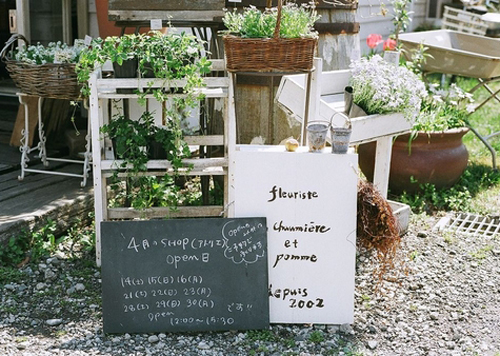 4月のSHOP(アトリエ)
OPEN日
14(土) 15(日) 16(月)
21(土) 22(日) 23(月)
28(土) 29(日) 30(月) です!!
open 12:00〜15:30
fleuriste
chaumière
et
pomme
depuis
2002